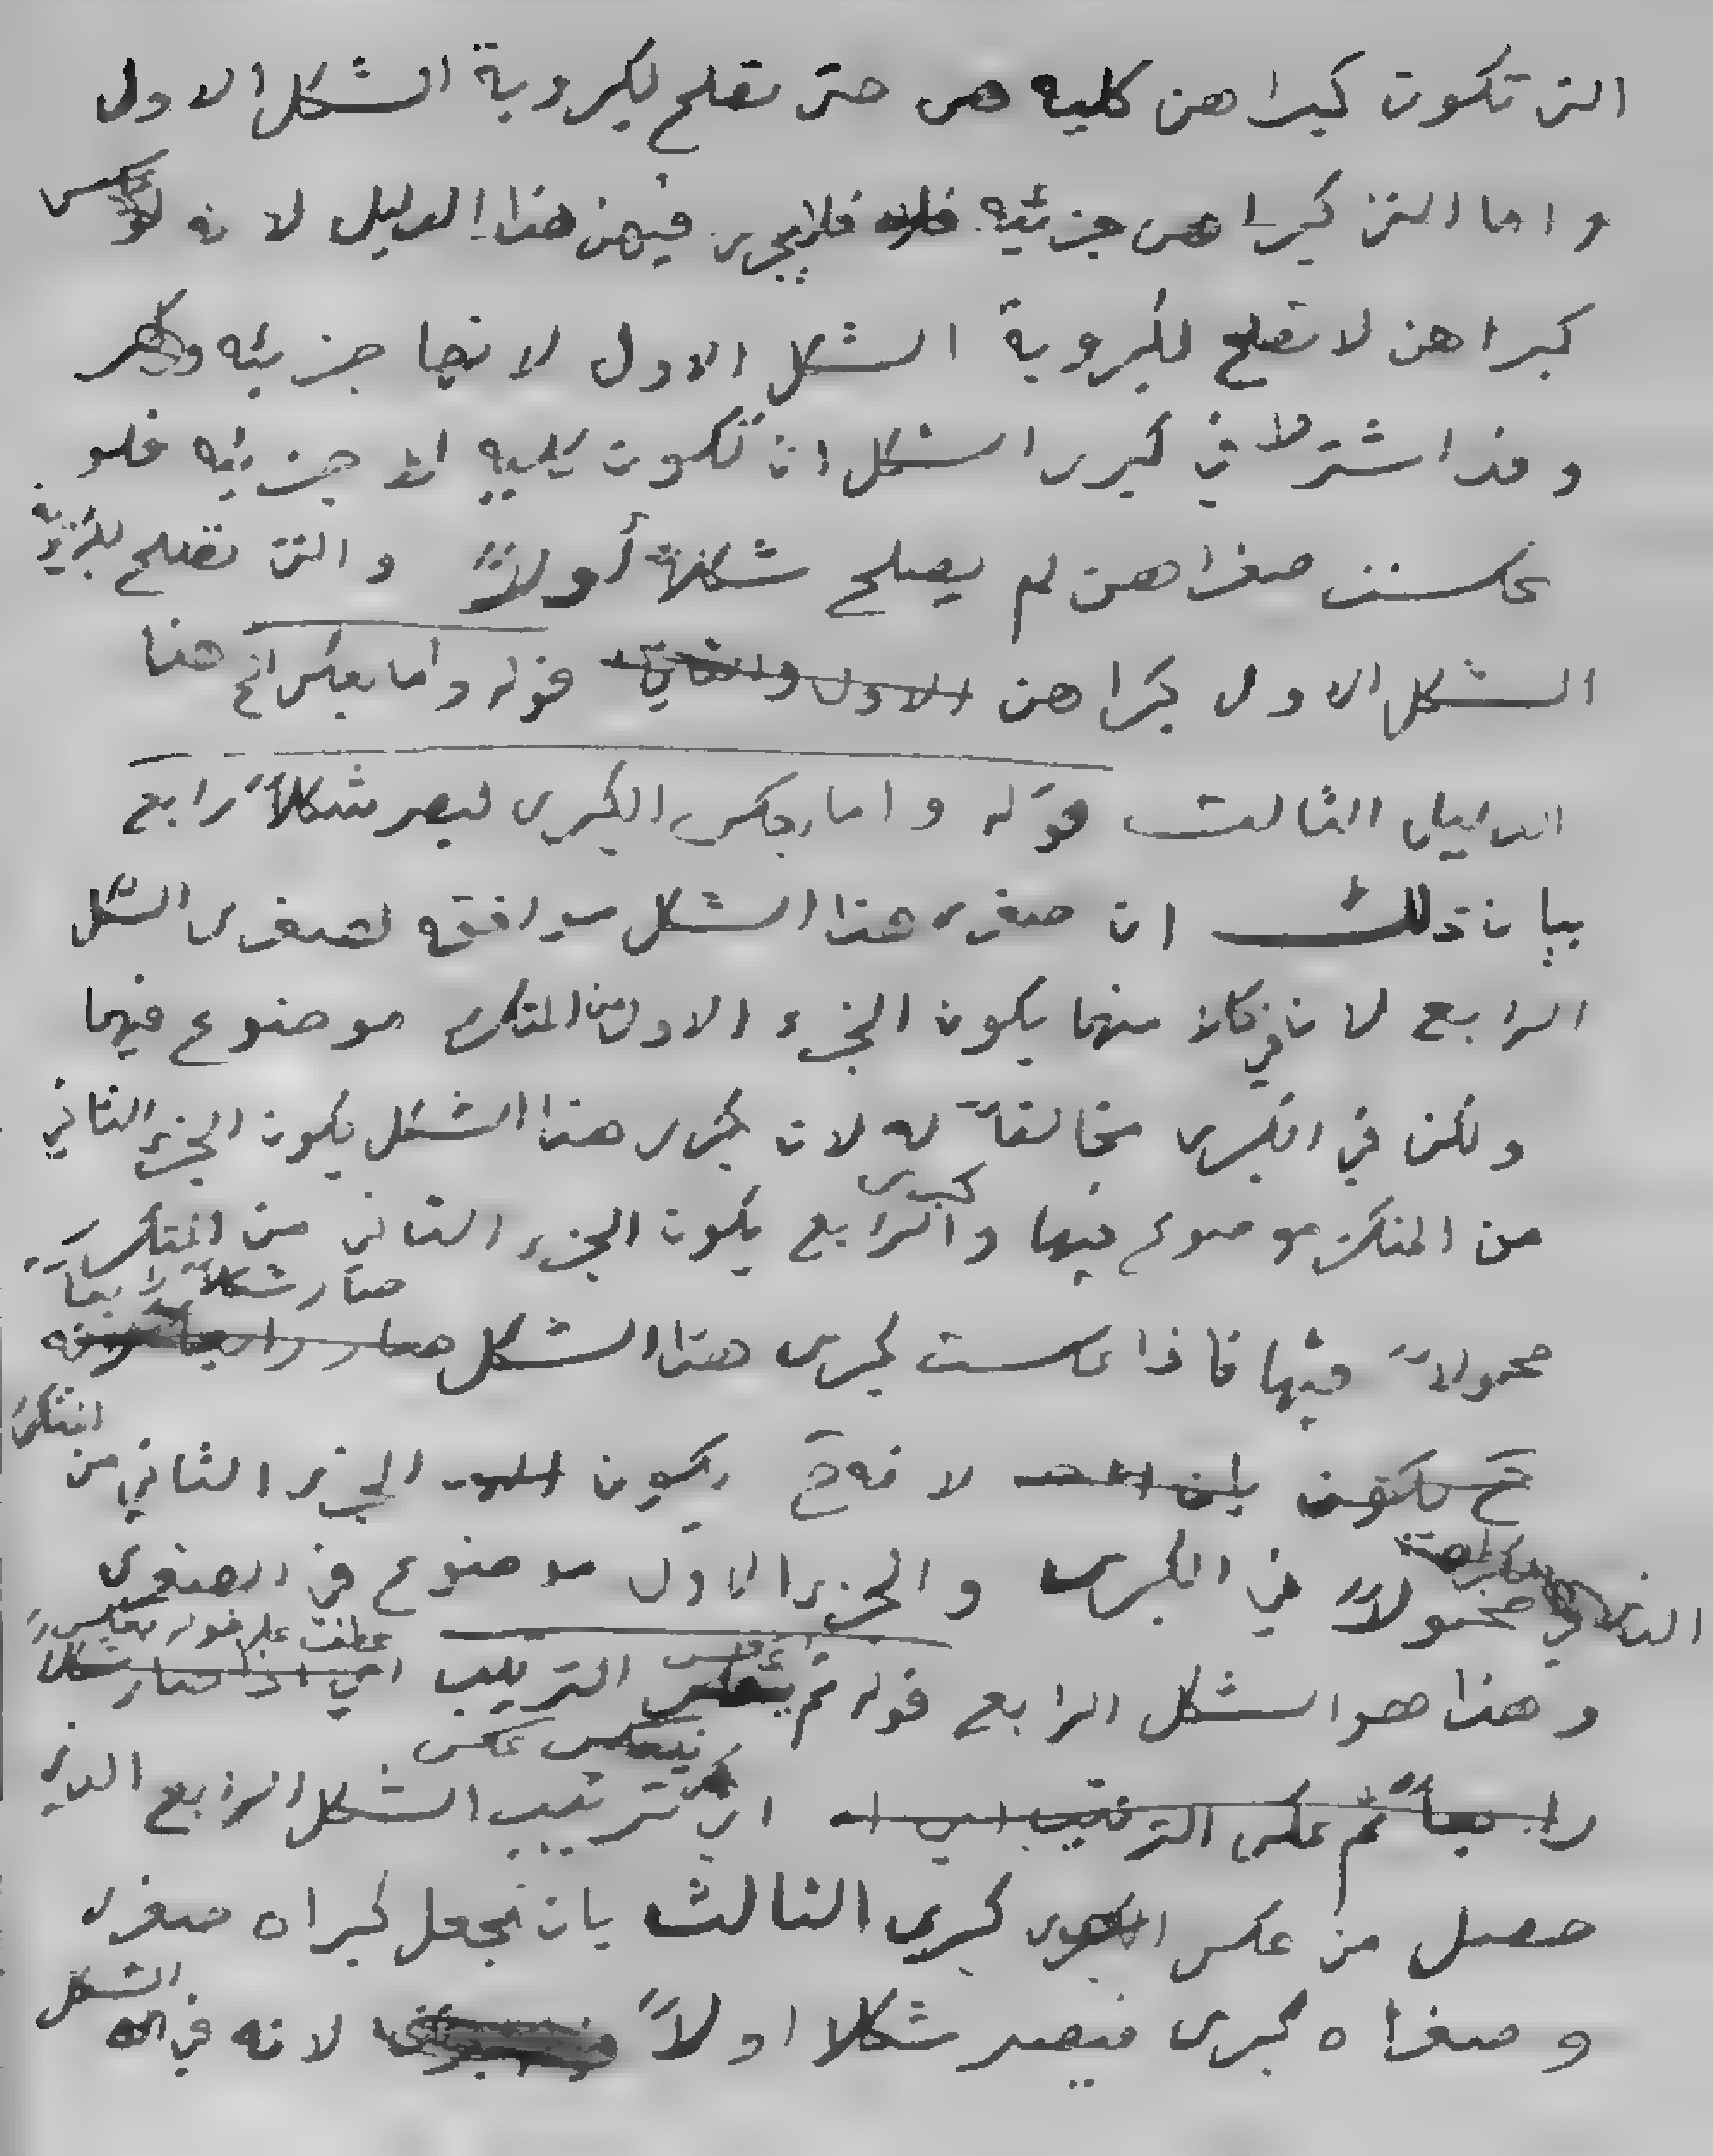 التي تكون كبراهن كليه هي حتى تصلح لكبروية الشكل الاول
واما التي كبراهن جزئيه فلا يجرى فيهن هذا الدليل لانه لو عكس
كبراهن لا تصلح لكبروية الشكل الاول لانها جزئيه
وقد اشترط في كبرى الشكل ان تكون كليه لا جزئيه فلو
عكست صغراهن لم يصلح شكلاً أولاً والتي تصلح لكبروية
الشكل الاول كبراهن الاول والثاني قوله واما بعكس الخ هنا
الدليل الثالث قوله واما بعكس الكبرى ليصر شكلاً رابع
بيان ذلك ان صغرى هذا الشكل موافقه لصغرى الشكل
الرابع لان في كان منهما يكون الجزء الاول من المتكرر موضوع فيهما
ولكن في الكبرى مخالفاً له لان كبرى هذا الشكل يكون الجزء الثاني
من المتكرر موضوع فيها وكبرى الرابع يكون الجزء الثاني من المتكرر
محمولاً فيها فاذا عكست كبرى هذا الشكل صار شكلاً رابعاً
لانه ح يكون الجزء الثاني من المتكرر
محمولاً في الكبرى والجزء الاول موضوع في الصغرى
وهذا هو الشكل الرابع قوله ثم بعكس الترتيب عطف على قوله بعكس
رابعاً ثم عكس الترتيب اي ترتيب الشكل الرابع الذي
حصل من عكس كبرى الثالث بان نجعل كبراه صغرى
وصغراه كبرى فيصير شكلا اولاً لانه في الشكل